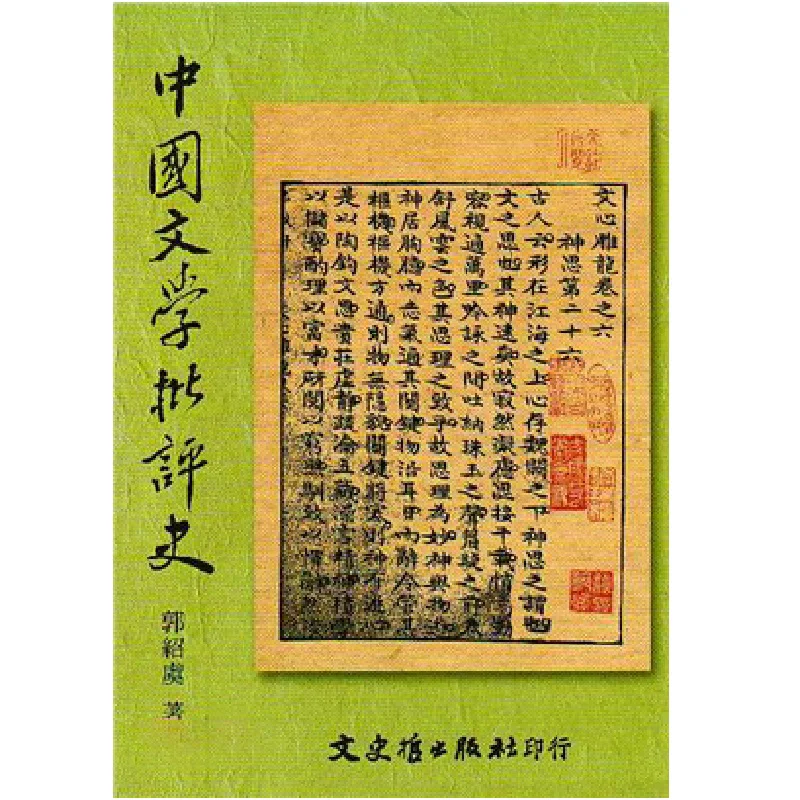 中國文學批評史
郭紹虞 著
文心雕龍卷之六
神思第二十六
古人云形在江海之上心存魏闕之下神思之謂也
文之思也其神遠矣故寂然凝慮思接千載悄焉動
容視通萬里吟詠之間吐納珠玉之聲眉睫之前卷
舒風雲之色其思理之致乎故思理為妙神與物
神居胸臆而志氣通其關鍵物沿耳目而辭令管其
樞機樞機方通則物無隱貌關鍵將塞則神有遯心
是以陶鈞文思貴在虛靜疏瀹五藏澡雪精神積學
以儲寶酌理以富才研閱以窮照馴致以懌辭然後
文史哲出版社印行